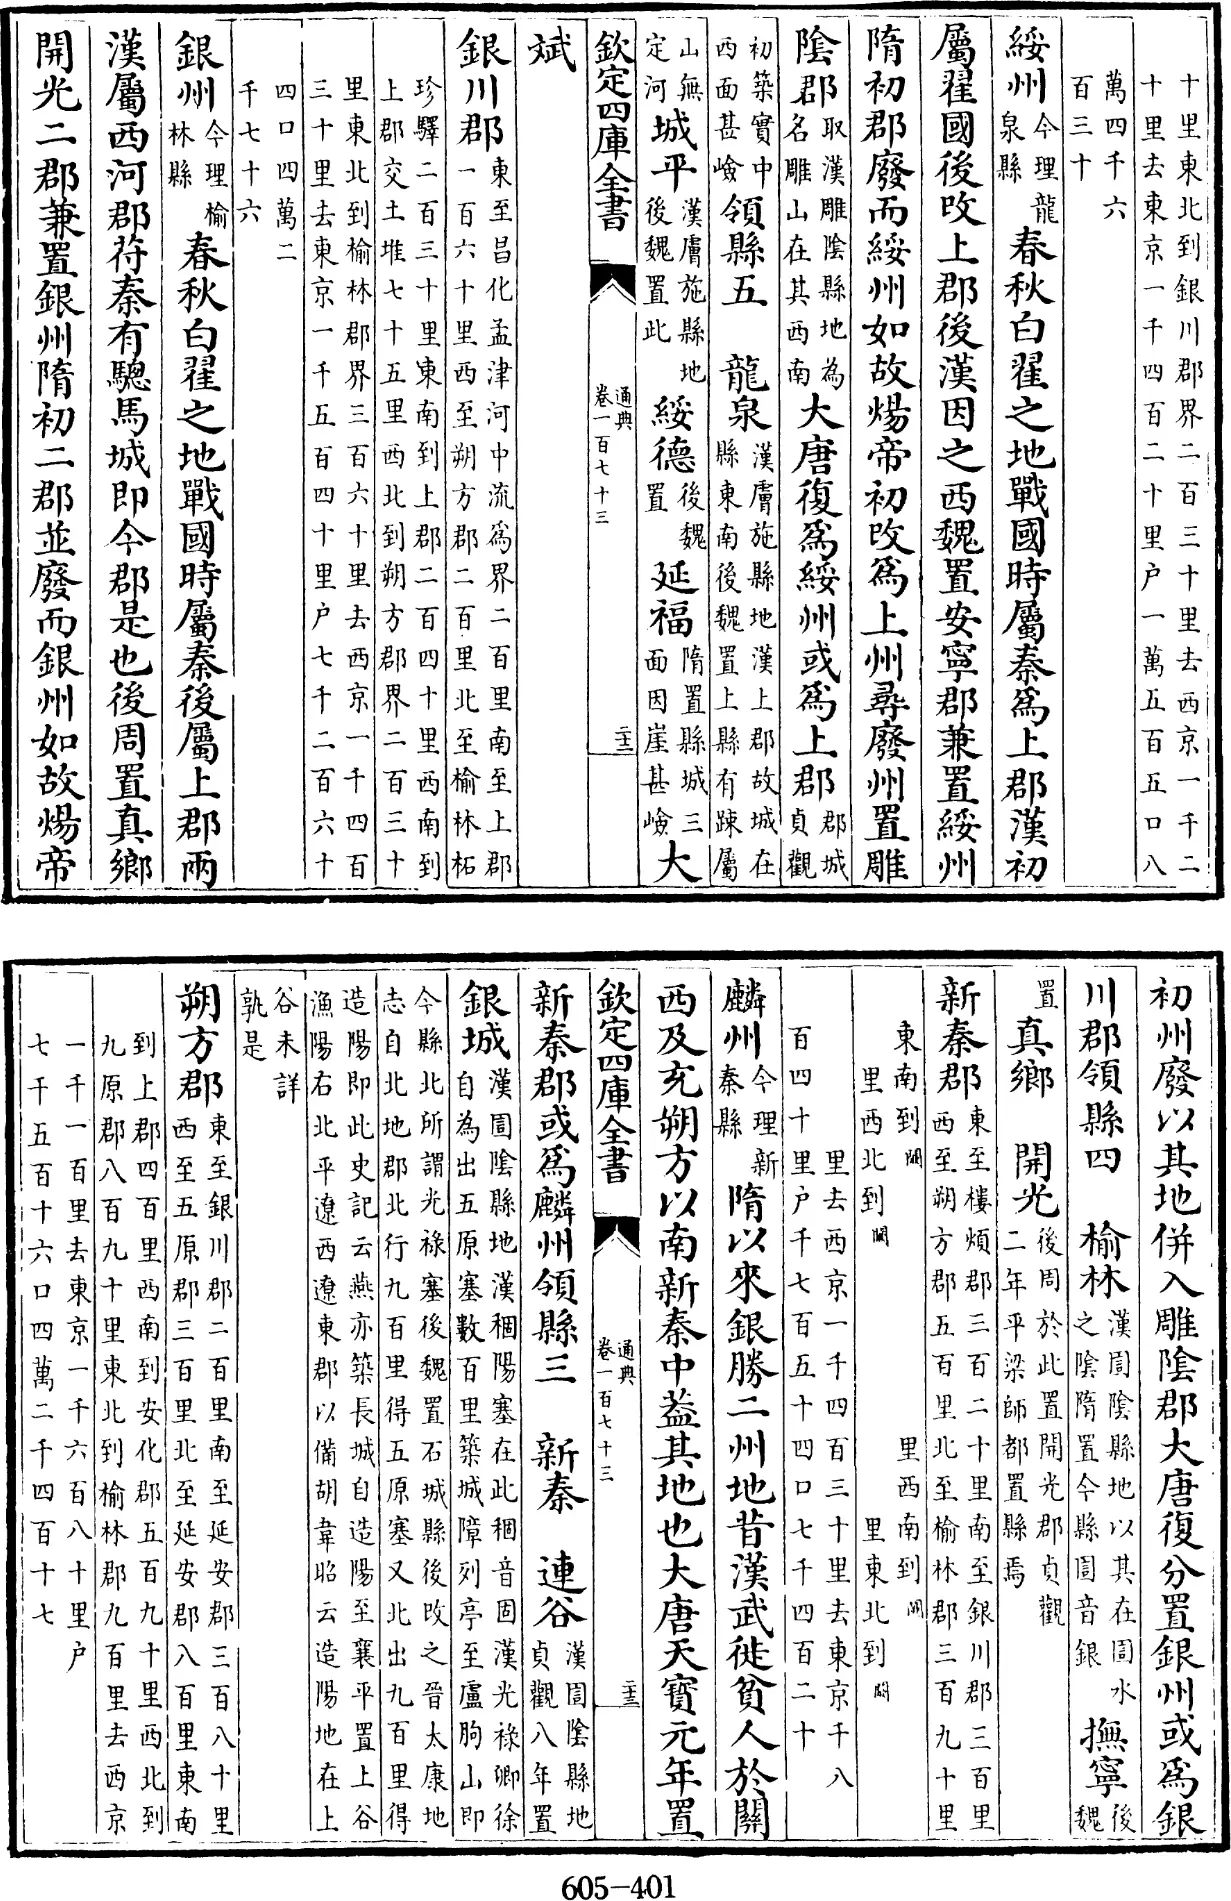 十里東北到銀川郡界二百三十里去西京一千二
十里去東京一千四百二十里户一萬五百五口八
萬四千六
百三十
綏州今理龍泉縣春秋白翟之地戰國時屬秦為上郡漢初
屬翟國後改上郡後漢因之西魏置安寧郡兼置綏州
隋初郡廢而綏州如故煬帝初改為上州尋廢州置雕
陰郡取漢雕陰縣地為名雕山在其西南大唐復為綏州或為上郡郡城貞觀
初築實中西面甚嶮領縣五 龍泉漢膚施縣地漢上郡故城在縣東南後魏置上縣有踈屬
山無定河城平漢膚施縣地後魏置此綏德後魏置延福隋置縣城三面因崖甚嶮大
欽定四庫全書 通典卷一百七十三 二十三
斌
銀川郡東至昌化孟津河中流為界二百里南至上郡
一百六十里西至朔方郡二百里北至榆林柘
珍驛二百三十里東南到上郡二百四十里西南到
上郡交土堆七十五里西北到朔方郡界二百三十
里東北到榆林郡界三百六十里去西京一千四百
三十里去東京一千五百四十里户七千二百六十
四口四萬二
千七十六
銀州今理榆林縣春秋白翟之地戰國時屬秦後屬上郡兩
漢屬西河郡苻秦有驄馬城即今郡是也後周置真鄉
開光二郡兼置銀州隋初二郡並廢而銀州如故煬帝
初州廢以其地併入雕陰郡大唐復分置銀州或為銀
川郡領縣四 榆林漢圁陰縣地以其在圁水之陰隋置今縣圁音銀撫寧後魏
置真鄉 開光後周於此置開光郡貞觀二年平梁師都置縣焉
新秦郡東至樓煩郡三百二十里南至銀川郡三百里
西至朔方郡五百里北至榆林郡三百九十里
東南到闕 里西南到闕
里西北到闕 里東北到闕
里去西京一千四百三十里去東京千八
百四十里户千七百五十四口七千四百二十
麟州今理新秦縣隋以來銀勝二州地昔漢武徙貧人於關
西及充朔方以南新秦中葢其地也大唐天寳元年置
欽定四庫全書 通典卷一百七十三 二十三
新秦郡或為麟州領縣三 新秦 連谷漢圁陰縣地貞觀八年置
銀城漢圁陰縣地漢稒陽塞在此稒音固漢光祿卿徐
自為出五原塞數百里築城障列亭至盧朐山即
今縣北所謂光祿塞後魏置石城縣後改之晉太康地
志自北地郡北行九百里得五原塞又北出九百里得
造陽即此史記云燕亦築長城自造陽至襄平置上谷
漁陽右北平遼西遼東郡以備胡韋昭云造陽地在上
谷未詳
孰是
朔方郡東至銀川郡二百里南至延安郡三百八十里
西至五原郡三百里北至延安郡八百里東南
到上郡四百里西南到安化郡五百九十里西北到
九原郡八百九十里東北到榆林郡九百里去西京
一千一百里去東京一千六百八十里户
七千五百十六口四萬二千四百十七
605-401